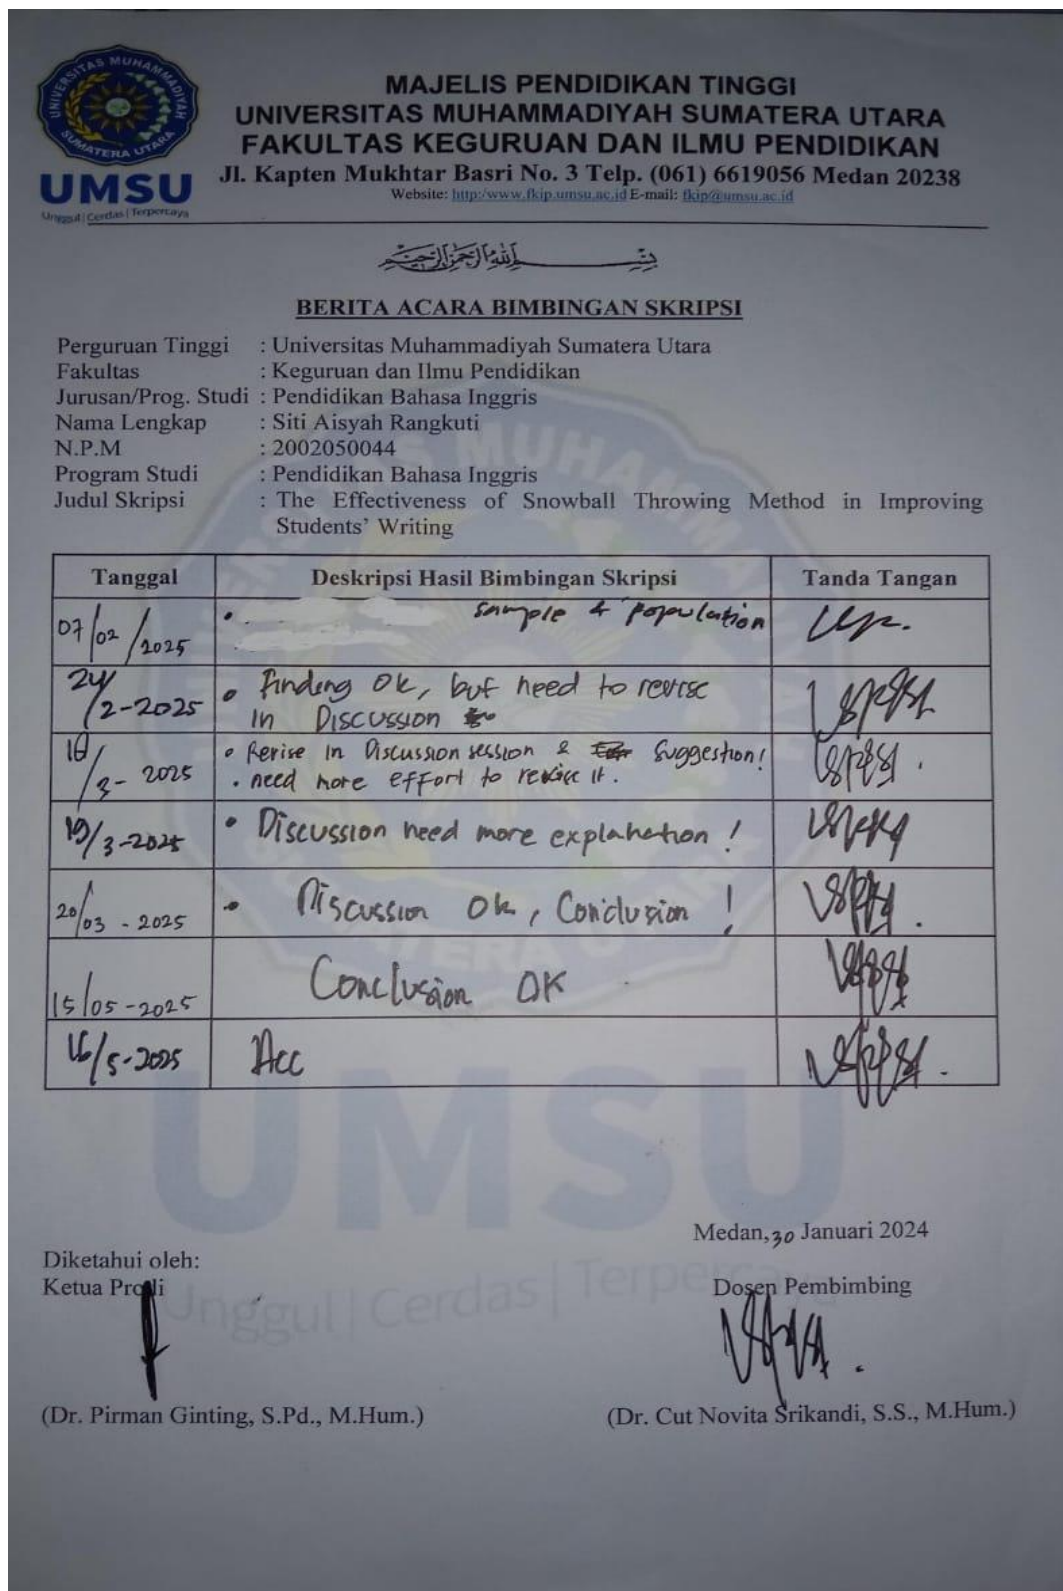 UNIVERSITAS MUHAMMADIYAH
SUMATERA UTARA
UMSU
Unggul | Cerdas | Terpercaya
MAJELIS PENDIDIKAN TINGGI
UNIVERSITAS MUHAMMADIYAH SUMATERA UTARA
FAKULTAS KEGURUAN DAN ILMU PENDIDIKAN
Jl. Kapten Mukhtar Basri No. 3 Telp. (061) 6619056 Medan 20238
Website: http:/www.fkip.umsu.ac.id E-mail: fkip@umsu.ac.id
بِسْــــــمِ اللَّهِ الرَّحْمَنِ الرَّحِيمِ
BERITA ACARA BIMBINGAN SKRIPSI
Perguruan Tinggi : Universitas Muhammadiyah Sumatera Utara
Fakultas : Keguruan dan Ilmu Pendidikan
Jurusan/Prog. Studi : Pendidikan Bahasa Inggris
Nama Lengkap : Siti Aisyah Rangkuti
N.P.M : 2002050044
Program Studi : Pendidikan Bahasa Inggris
Judul Skripsi : The Effectiveness of Snowball Throwing Method in Improving
Students' Writing
Tanggal Deskripsi Hasil Bimbingan Skripsi Tanda Tangan
07/02/2025 • sample & population
24/2-2025 • Finding Ok, but need to revise
in Discussion
18/3-2025 • Revise in Discussion session & Suggestion!
• need more effort to revise it.
19/3-2025 • Discussion need more explanation !
20/03-2025 • Discussion Ok, Conclusion !
15/05-2025 Conclusion OK
16/5-2025 Acc
UMSU
Unggul | Cerdas | Terpercaya
Medan, 30 Januari 2024
Diketahui oleh:
Ketua Prodi Dosen Pembimbing
(Dr. Pirman Ginting, S.Pd., M.Hum.) (Dr. Cut Novita Srikandi, S.S., M.Hum.)